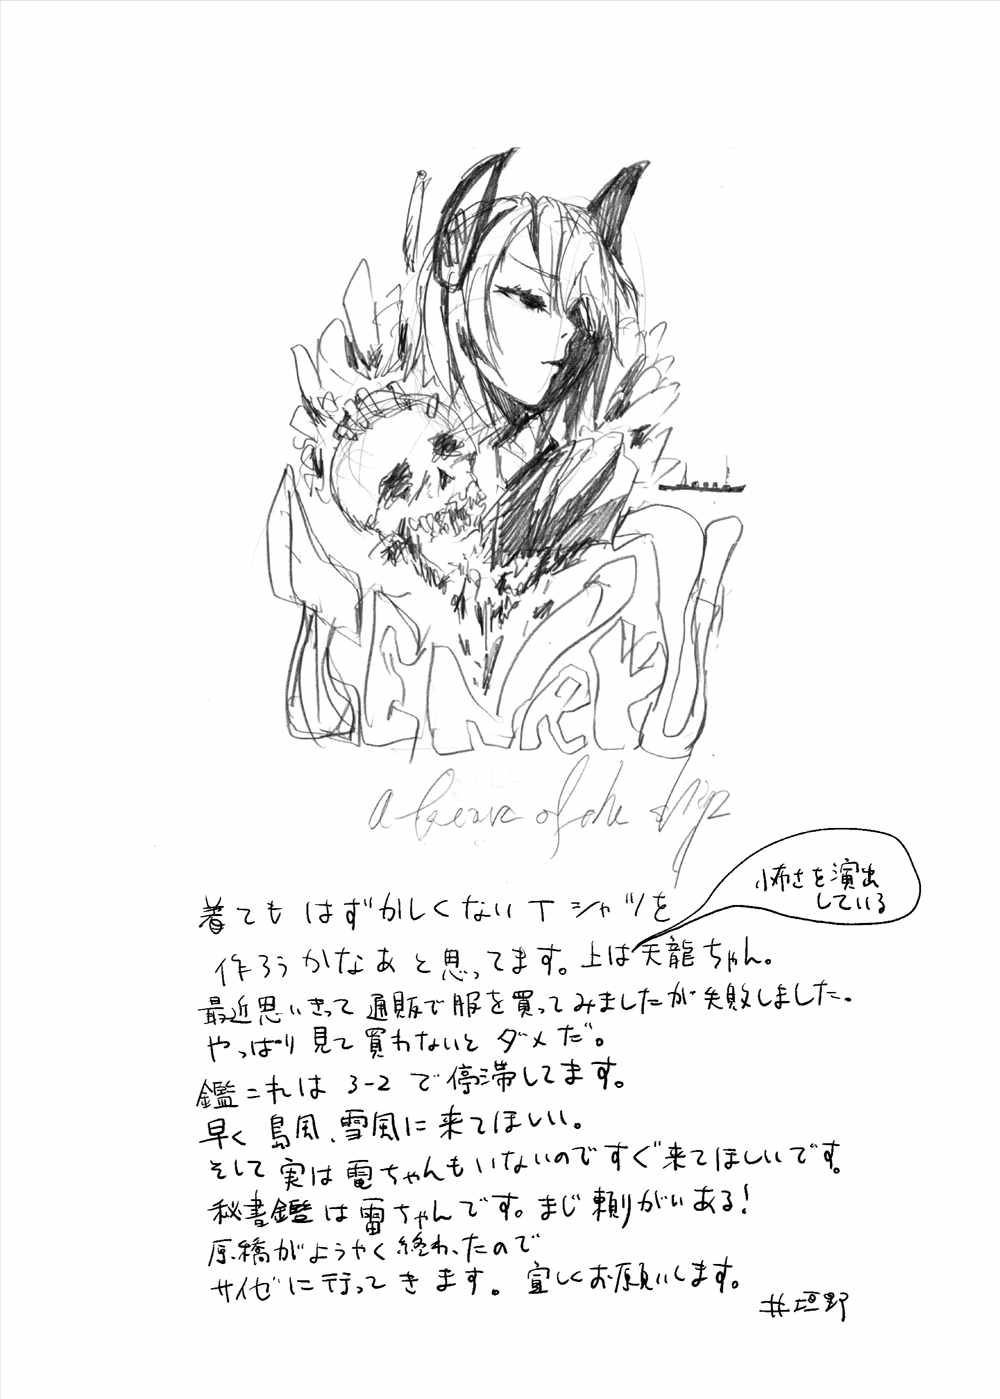 TENRYU
a brave of the ships
怖さを演出
している
着てもはずかしくないTシャツを
作ろうかなあと思ってます。上は天龍ちゃん。
最近思いきって通販で服を買ってみましたが失敗しました。
やっぱり見て買わないとダメだ。
鑑これは3-2で停滞してます。
早く島風、雪風に来てほしい。
そして実は電ちゃんもいないのですぐ来てほしいです。
秘書鑑は雷ちゃんです。まじ頼りがいある!
原稿がようやく終わったので
サイゼに行ってきます。宜しくお願いします。
井垣野